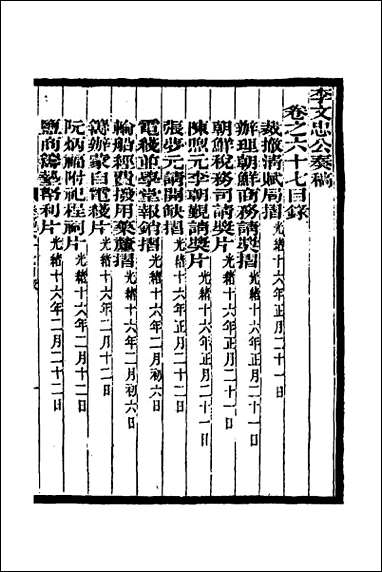 李文忠公奏稿
卷之六十七目錄
裁撤清賦局摺光緒十六年正月二十一日
辦理朝鮮商務請獎摺光緒十六年正月二十一日
朝鮮稅務司請獎片光緒十六年正月二十一日
陳煦元李朝覲請獎片光緒十六年正月二十一日
張夢元請開缺摺光緒十六年正月二十二日
電綫並學堂報銷摺光緒十六年二月初六日
輪船經費撥用藥釐摺光緒十六年二月初六日
籌辦蒙自電綫片光緒十六年二月十二日
阮炳福附祀程祠片光緒十六年二月十二日
鹽商籌墊幣利片光緒十六年二月二十二日